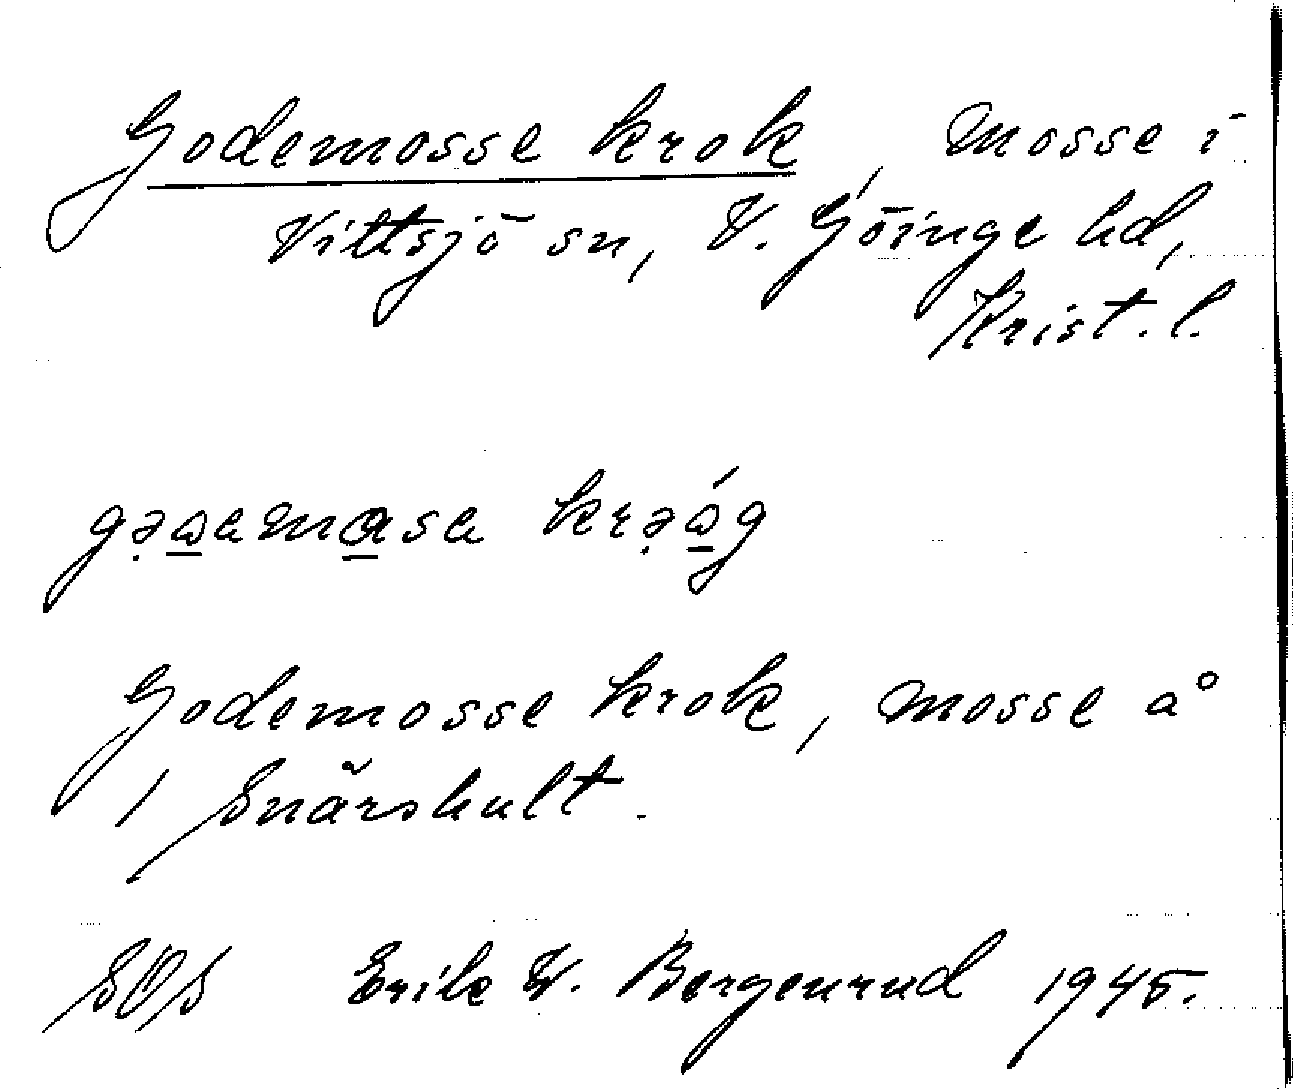 Godemosse krok, mosse i
Vittsjö sn, V. Göinge hd,
Krist. l.
gə̣ω̲amɑ̲sa krə̣ώ̲g
Godemosse krok, mosse å
/ Snärshult.
SOS Erik W. Bergenrud 1945.